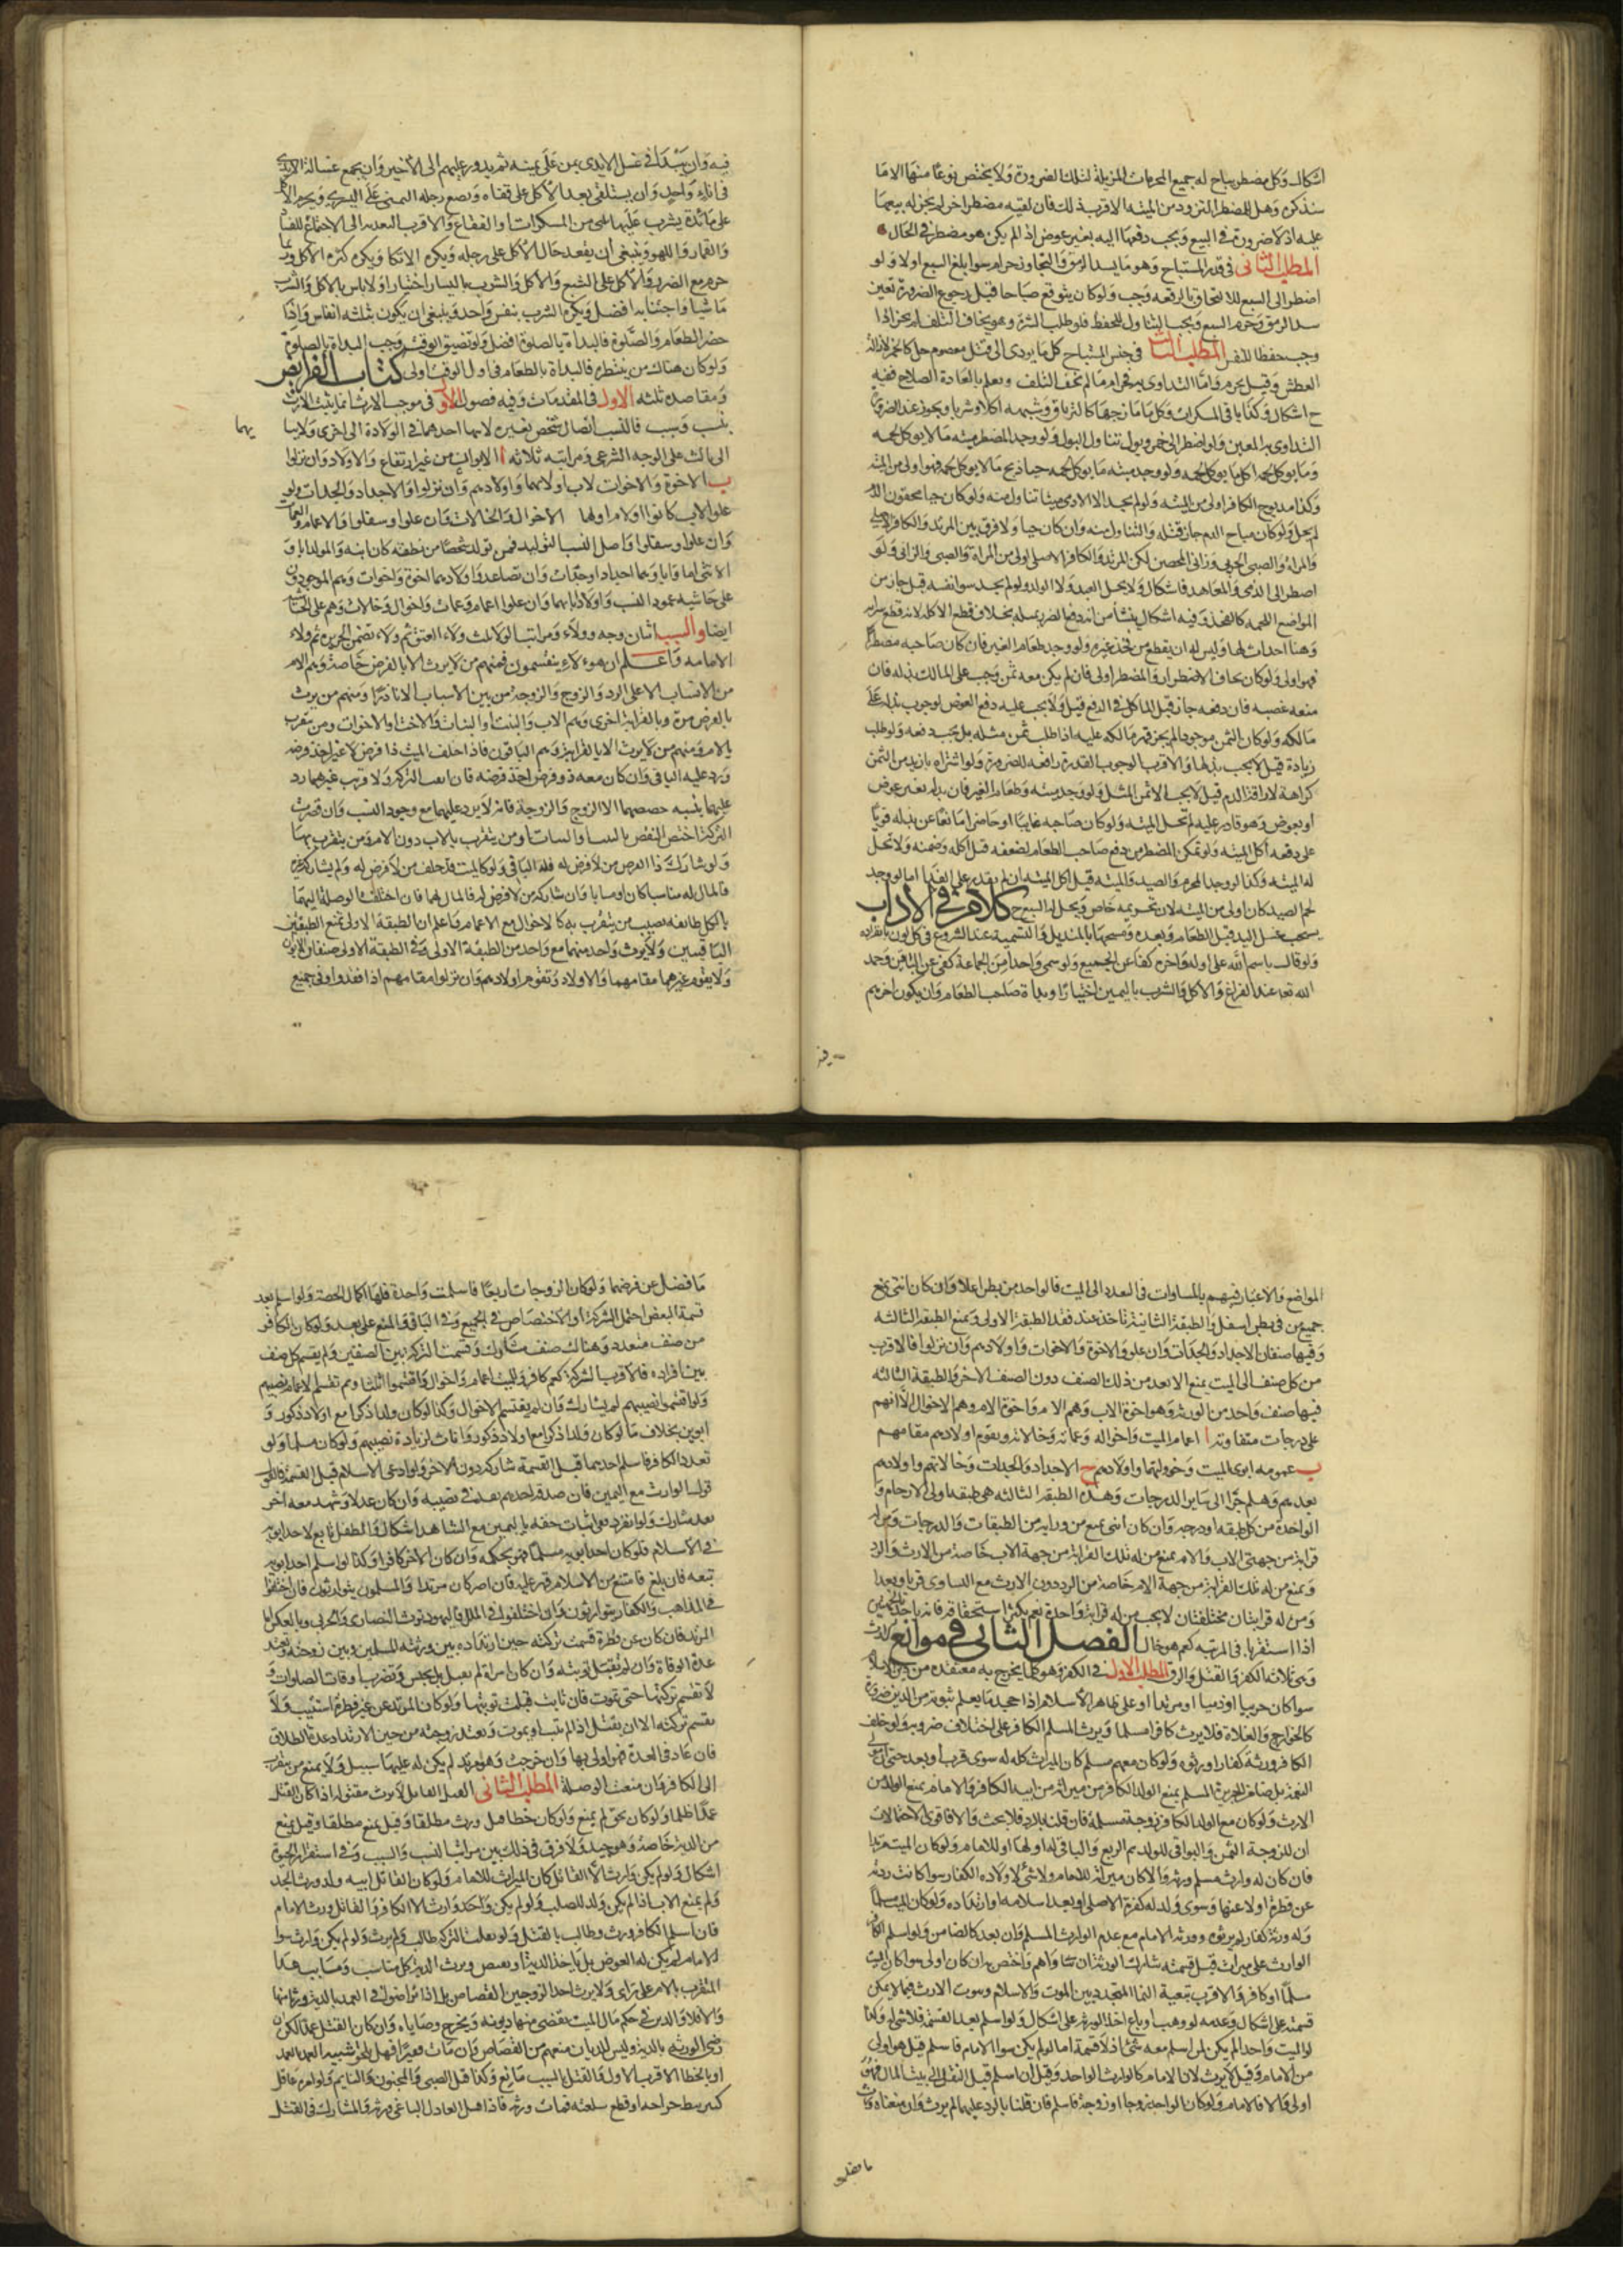 اشكال وكل مضطر يباح له جميع المحرمات المزيلة لتلك الضرورة ولا يختص نوعا منها الا ما
سنذكره وهل للمضطر التزود من الميته الاقرب ذلك فان لقيه مضطر اخر لم يجز له بيعها
عليه اذ لا ضرورة في البيع ويجب دفعها اليه بغير عوض اذا لم يكن هو مضطر في الحال
المطلب الثاني في قدر المستباح وهو ما يسد الرمق والتجاوز حرام سوا بلغ السبع اولا ولو
اضطر الى السبع للالتحاق بالرفقه وجب ولو كان يتوقع صباحا قبل رجوع الضرورة تعين
سد الرمق وحرم السبع ويجب التناول للحفظ فلو طلب التنزه وهو يخاف التلف لم يجز اذا
وجب حفظا للنفس المطلب الثالث في جنس المستباح كل ما يودى الى قتل معصوم حل كالخمر لازالة
العطش وقيل يحرم واما التداوى به فحرام ما لم يخف التلف ويعلم بالعادة الصلاح ففيه
ح اشكال وكذا باقى المسكرات وكل ما مازجها كالترياق وشبهه اكلا وشربا ويجوز عند الضرورة
التداوى به للعين ولو اضطر الى خمر وبول تناول البول ولو وجد المضطر ميته ما لا يوكل لحمه
وما يوكل لحمه اكل ما يوكل لحمه ولو وجد ميته ما يوكل لحمه حيا ذبح ما لا يوكل لحمه فهو اولى من الميته
وكذا مذبوح الكافر اولى من الميته ولو لم يجد الا الادمى ميتا تناول منه ولو كان حيا محقون الدم
لم يحل ولو كان مباح الدم جاز قتله والتناول منه وان كان حيا ولا فرق بين المرتد والكافر الاصلي
والمراة والصبى الحربى وزانى المحصن لكن المرتد والكافر الاصلى اولى من المراة والصبى والزانى ولو
اضطر الى الذمى والمعاهد فاشكال ولا يحل العبد ولا الولد ولو لم يجد سوا نفسه قيل جاز من
المواضع اللحمه كالفخذ وفيه اشكال ينشا من انه دفع الضرر بمثله بخلاف قطع الاكله لانه قطع سراية
وهنا احداث لها وليس له ان يقطع من فخذ غيره ولو وجد طعام الغير فان كان صاحبه مضطرا
فهو اولى ولو كان يخاف الاضطرار فالمضطر اولى فان لم يكن معه ثمن وجب على المالك بذله فان
منعه غصبه فان دفعه جاز قتل المالك في الدفع قيل ولا يجب عليه دفع العوض لوجوب بذله على
مالكه ولو كان الثمن موجودا لم يجز قهر مالكه عليه اذا طلب ثمن مثله بل يجب دفعه ولو طلب
زيادة قيل لا يجب بذلها والاقرب الوجوب القدرة رافعه للضرورة ولو اشتراه بازيد من الثمن
كراهة لاراقة الدم قيل لا يجب الا ثمن المثل ولو وجد ميته وطعام الغير فان بذله بغير عوض
او بعوض وهو قادر عليه لم تحل الميته ولو كان صاحبه غايبا او حاضرا مانعا عن بذله قويا
على دفعه اكل الميته ولو تمكن المضطر من دفع صاحب الطعام لضعفه قيل اكله وضمنه ولا تحل
له الميته وكذا لو وجد المحرم والصيد والميته قيل اكل الميته ان لم يقدر على الفدا اما لو وجد
لحم الصيد كان اولى من الميته لان تحريمه خاص ويحل له السبع ح كلام في الاداب
يستحب غسل اليد قبل الطعام وبعده ومسحها بالمنديل والتسمية عند الشروع في كل لون بانفراده
ولو قال باسم الله على اوله واخره كفا عن الجميع ولو سمى واحد من الجماعة كفى عن الباقين وحمد
الله تعا عند الفراغ والاكل والشرب باليمين اختيارا وبداة صاحب الطعام وان يكون اخرهم
فيه وان يبدا في غسل الايدى بمن على يمينه ثم يدور عليهم الى الاخير وان يجمع غسالة الايدى
في اناء واحد وان يستلقى بعد الاكل على قفاه ونضع رجله اليمنى على اليسرى ويحرم الاكل
على مائدة يشرب عليها شى من المسكرات والفقاع والاقرب التعديه الى الاجتماع للفساد
والقمار واللهو وينبغى ان يقعد حال الاكل على رجله ويكره الاتكا ويكره كثره الاكل وربما
حرم مع الضرر والاكل على الشبع والاكل والشرب باليسار اختيارا ولا باس بالاكل والشرب
ماشيا واجتنابه افضل ويكره الشرب بنفس واحد وينبغى ان يكون بثلثه انفاس واذا
حضر الطعام والصلوة فالبداة بالصلوة افضل ولو تضيق الوقت وجب البداة بالصلوة
ولو كان هناك من ينتظره فالبداة بالطعام في اول الوقت اولى كتاب الفرايض
ومقاصده ثلثه الاول في المقدمات وفيه فصول الاول في موجب الارث انما يثبت الارث
بنسب وسبب فالنسب اتصال شخص بغيره لانتها احدهما في الولادة الى اخرى ولانتها
يهما
الى ثالث على الوجه الشرعى ومراتبه ثلاثه ا الابوان من غير ارتفاع والاولاد وان نزلوا
ب الاخوة والاخوات لاب اولام وا واولادهم وان نزلوا والاجداد والجدات ولو
علوا لاب كانوا اولام اولهما الاخوال والخالات وان علوا وسفلوا والاعمام والعمات
وان علوا وسفلوا واصل النسب التوليد فمن تولد شخصا من نطفته كان ابنه والمولد اب و
الانثى اما وابا وهما اجداد وجدات وان تصاعدوا واولادهما اخوة واخوات وهم الموجودون
على حاشيه عمود النسب واولاد ابايهما وان علوا اعمام وعمات واخوال وخالات وهم على الحاشية
ايضا والسبب اثنان زوجه وولاء ومراتب الولا ثلث ولاء العتق ثم ولاء تضمن الجريره ثم ولاء
الامامه واعلم ان هولاء ينقسمون فمنهم من لا يرث الا بالفرض خاصة وهم الام
من الانساب الا على الرد والزوج والزوجة من بين الاسباب الا نادرا ومنهم من يرث
بالفرض مرة وبالقرابة اخرى وهم الاب والبنت او البنات والاخت او الاخوات ومن يتقرب
بالام ومنهم من لا يرث الا بالقرابة وهم الباقون فاذا خلف الميت ذا فرض لا غير اخذ فرضه
ورد عليه الباقى وان كان معه ذو فرض اخذ فرضه فان ابقت التركة ولا قريب غيرهما رد
عليهما بنسبه حصصهما الا الزوج والزوجة فانه لا يرد عليهما مع وجود النسب وان قصرت
التركة اختص النقص بالبنت او البنات او من يتقرب بالاب دون الام ومن يتقرب بها
ولو شارك ذا الفرض من لا فرض له فله الباقى ولو كان الميت قد خلف من لا فرض له ولم يشاركه غيره
فالمال له مناسبا كان او مسابا وان شاركه من لا فرض له فالمال لهما فان اختلفت الوصلة اليهما
فلكل طائفه نصيب من يتقرب به كالاخوال مع الاعمام واعلم ان الطبقة الاولى تمنع الطبقتين
الباقيتين ولا يرث واحد منهما مع واحد من الطبقة الاولى وفي الطبقة الاولى صنفان الابوان
ولا يقوم غيرهما مقامهما والاولاد وتقوم اولادهم وان نزلوا مقامهم اذا فقدوا وفي جميع
المواضع والاعتبار فيهم بالمساوات في التعدد الى الميت فالواحد من بطن اعلا وان كان انثى يمنع
جميع من في بطن اسفل والطبقة الثانية تاخذ عند فقد الطبقة الاولى ويمنع الطبقة الثالثه
وفيها صنفان الاجداد والجدات وان علو والاخوة والاخوات واولادهم وان نزلوا فالاقرب
من كل صنف الى الميت يمنع الابعد من ذلك الصنف دون الصنف الاخر والطبقة الثالثه
فيها صنف واحد من الورثه وهو اخوة الاب وهم الاعمام واخوة الام وهم الاخوال الا انهم
على درجات متفاوته ا اعمام الميت واخواله وعماته وخالاته ويقوم اولادهم مقامهم
ب عمومه ابوى الميت وخولتهما واولادهم ج الاجداد والجدات وخالاتهم واولادهم
بعدهم وهلم جرا الى ساير الدرجات وهذه الطبقه الثالثه هى طبقه اولى الارحام و
الواحد من كل طبقه او درجه وان كان انثى يمنع من ورايه من الطبقات والدرجات ومن له
قرابة من جهتى الاب والام يمنع من له تلك القرابة من جهة الاب خاصة من الارث والرد
ويمنع من له تلك القرابة من جهة الام خاصة من الرد دون الارث مع التساوى قربا وبعدا
ومن له قرابتان مختلفتان لا يحجب من له قرابة واحدة نعم يكثر استحقاقه فانه ياخذ بالجهتين
اذا استقربا في المرتبه كعم هو خال الفصل الثاني في موانع الارث
وهى ثلاثه الكفر والقتل والرق المطلب الاول في الكفر وهو كلما يخرج به معتقده من دين الاسلام
سوا كان حربيا او ذميا او مرتدا او على ظاهر الاسلام اذا جحد ما يعلم ثبوته من الدين ضرورة
كالخوارج والغلاة فلا يرث كافر مسلما ويرث المسلم الكافر على اختلاف ضروبه ولو خلف
الكافر ورثة كفار ا ورثوه ولو كان معهم مسلم كان الميراث كله له سوى قرب او بعد حتى مولى
النعمة بل ضامن الجريرة المسلم يمنع الولد الكافر من ميراثه من ابيه الكافر والامام يمنع الوالد من
الارث ولو كان مع الولد الكافر زوجة مسلمة فان قلنا بالرد فلا بحث والا فاقوى الاحتمالات
ان للزوجة الثمن والبواقى للولد ثم الربع والباقى له اولها او للامام ولو كان الميت مرتدا
فان كان له وارث مسلم ورثه والا كان ميراثه للامام ولا شى لاولاده الكفار سوا كانت ردته
عن فطرة اولا عنها وسوى ولد له كفرته الاصلى او بعد اسلامه او ارتداده ولو كان الميت مسلما
وله ورثه كفار لم يرثوه وورثه الامام مع عدم الوارث المسلم وان بعد كالضامن ولو اسلم الكافر
الوارث على ميراث قبل قسمته شارك الورثة ان ساواهم واختص به ان كان اولى سوا كان الميت
مسلما او كافرا والاقرب تبعية النما المتجدد بين الموت والاسلام وسوت الارث فيما لا يمكن
قسمته على اشكال وعدمه لو وهب او باع احد الورثه على اشكال ولو اسلم بعد القسمة فلا شى له وكذا
لو الميت واحدا لم يكن لمن اسلم معه شى اذ لا قسمة اما لو لم يكن سوا الامام فاسلم قيل هو اولى
من الامام وقيل لا يرث لان الامام كالوارث الواحد وقيل ان اسلم قبل النقل الى بيت المال فهو
اولى والا فالامام ولو كان الواحد زوجا او زوجة فاسلم فان قلنا بالرد عليهما لم يرث وان منعناه ورث
ما فضل
ما فضل عن فرضهما ولو كان الزوجات اربعا فاسلمت واحدة فلها اكمال الحصة ولو اسلم بعد
قسمة البعض احتمل الشركة او الاختصاص في الجميع وفي الباقى والمنع على بعد ولو كان الكافر
من صنف متعدد وهناك صنف مشارك وقسمت التركة بين الصنفين ولم يقسم كل صنف
بين افراده فالاقرب الشركة كعم كافر وللميت اعمام واخوال واقتسموا اثلاثا ثم لم تقتسم الاعمام نصيبهم
ولو اقتسموا نصيبهم لم يشارك وان لم يقتسم الاخوال وكذا لو كان ولدا ذكرا مع اولاد ذكور و
ابوين بخلاف ما لو كان ولدا ذكرا مع اولاد ذكور واناث لزيادة نصيبهم ولو كان مسلما ولو
تعدد الكافر فاسلم احدهما قبل القسمة شارك دون الاخر ولو ادعى الاسلام قبل القسمة فالقول
قول الوارث مع اليمين فان صدقه احدهم نفذ في نصيبه وان كان عدلا وشهد معه اخر
بعده شارك ولو انفرد ففى اثبات حقه باليمين مع الشاهد اشكال والطفل تابع لاحد ابويه
في الاسلام فلو كان احد ابويه مسلما فهو بحكمه وان كان الاخر كافرا وكذا لو اسلم احد ابويه
تبعه فان بلغ فامتنع من الاسلام قهر عليه فان اصر كان مرتدا والمسلمون يتوارثون وان اختلفوا
في المذاهب والكفار يتوارثون وان اختلفوا في الملل فاليهود ترث النصارى والحربى وبالعكس اما
المرتد فان كان عن فطرة قسمت تركته حين ارتداده بين ورثته المسلمين وبين زوجته وتعتد
عدة الوفاة وان لم تقبل توبته وان كان امراة لم يقتل بل يحبس وتضرب اوقات الصلوات و
لا تقسم تركتها حتى تموت فان تابت قبلت توبتها ولو كان المرتد عن غير فطرة استتيب ولا
تقسم تركته الا ان يقتل اذ لم يتب او يموت وتعتد زوجته من حين الارتداد عدة الطلاق
فان عاد في العدة فهو اولى بها وان خرجت وهو مرتد لم يكن له عليها سبيل ولا يمنع من يتقرب
الى الكافر وان منعت الوصلة المطلب الثاني القتل القاتل لا يرث مقتوله اذا كان القتل
عمدا ظلما ولو كان بحق لم يمنع ولو كان خطا قيل ورث مطلقا وقيل يمنع مطلقا وقيل يمنع
من الدية خاصة وهو جيد ولا فرق في ذلك بين مراتب النسب والسبب وفي استقرار الحيوة
اشكال ولو لم يكن وارث الا القاتل كان الميراث للامام ولو كان القاتل ابيه ولد ورث الجد
ولم يمنع الاب اذا لم يكن ولد للصلب ولو لم يكن واحد وارث الا الكافر والقاتل ورث الامام
فان اسلم الكافر ورث وطالب بالقتل ولو نقلت التركة طالب ولم يرث ولو لم يكن وارث سوا
الامام لم يكن له العوض بل ياخذ الدية او يقتص ويرث الدية كل مناسب ومسابب عدا
المتقرب بالام على راى ولا يرث احد الزوجين القصاص بل اذا تراضوا في العمد بالدية ورثا منها
والا فلا والدية في حكم مال الميت يقضى منها ديونه ويخرج وصاياه وان كان القتل عمدا لكن ان
رضى الورثه بالدية وليس للديان منعهم من القصاص وان مات فقيرا فهل يلحق شبيه العمد بالعمد
او بالخطا الاقرب الاول والقتل بالسبب مانع وكذا قتل الصبى والمجنون والنايم ولو امر عاقل
كبير بسط جراحه او قطع سلعته فمات ورثه فاذا قتل العادل الباغى ورثه والمشارك في القتل